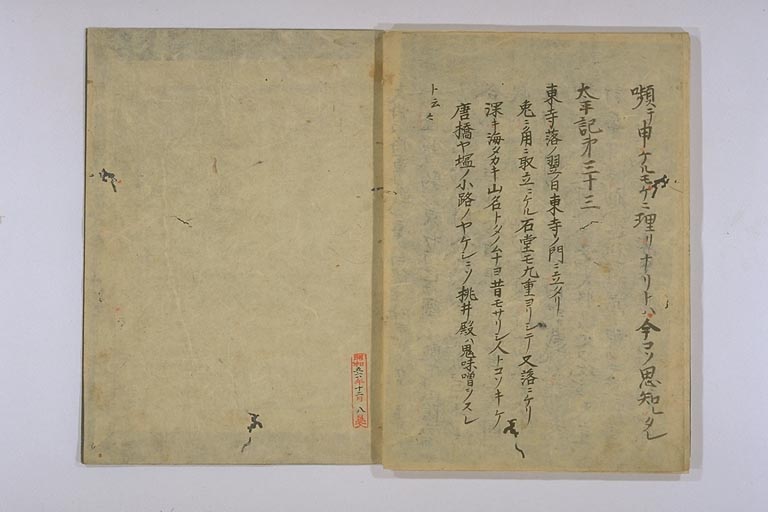 嚬テ申ケルモケニ理リナリトハ今コソ思知レタレ
太平記第三十三
東寺落ノ翌日東寺ノ門ニ立タリ
兎ニ角ニ取立ニケル石堂モ九重ヨリシテ又落ニケリ
深キ海タカキ山名トタノムナヨ昔モサリシ人トコソキケ
唐橋ヤ塩ノ小路ノヤケシニソ桃井殿ハ鬼味噌ヲスレ
ト云々
昭和 年十二月 八